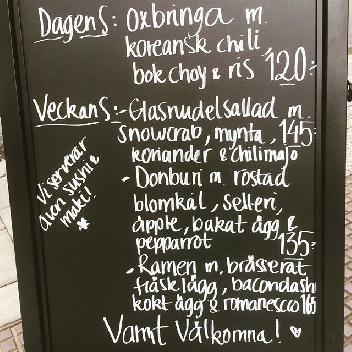 Dagens: Oxbringa m.
koreansk chili
bok choy & ris 120:-
Veckans:- Glasnudelsallad m.
snowcrab, mynta, 145:-
koriander & chilimajo
- Donburi m. rostad
blomkål, selleri,
äpple, bakat ägg &
pepparrot 135:-
- Ramen m. bräserat
fläsklägg, bacondashi
kokt ägg & romanesco 165
Vi serverar
även sushi &
maki!
Varmt Välkomna!